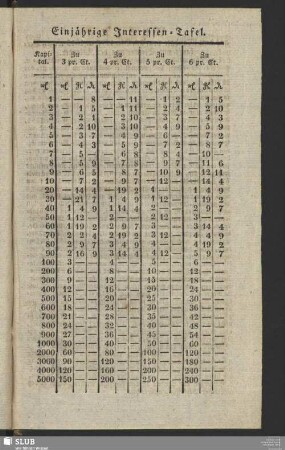 Einjährige Interessen-Tafel.
Kapital. Zu 3 pr. Ct. Zu 4 pr. Ct. Zu 5 pr. Ct. Zu 6 pr. Ct.
1 — — 8 — — 11 — 1 2 — 1 5
2 — 1 5 — 1 11 — 2 4 — 2 10
3 — 2 1 — 2 10 — 3 7 — 4 3
4 — 2 10 — 3 10 — 4 9 — 5 9
5 — 3 7 — 4 9 — 6 — — 7 2
6 — 4 3 — 5 9 — 7 2 — 8 7
7 — 5 — — 6 8 — 8 4 — 10 —
8 — 5 9 — 7 8 — 9 7 — 11 6
9 — 6 5 — 8 7 — 10 9 — 12 11
10 — 7 2 — 9 7 — 12 — — 14 4
20 — 14 4 — 19 2 1 — — 1 4 9
30 — 21 7 1 4 9 1 12 — 1 19 2
40 1 4 9 1 14 4 2 — — 2 9 7
50 1 12 — 2 — — 2 12 — 3 — —
60 1 19 2 2 9 7 3 — — 3 14 4
70 2 2 4 2 19 2 3 12 — 4 4 9
80 2 9 7 3 4 9 4 — — 4 19 2
90 2 16 9 3 14 4 4 12 — 5 9 7
100 3 — — 4 — — 5 — — 6 — —
200 6 — — 8 — — 10 — — 12 — —
300 9 — — 12 — — 15 — — 18 — —
400 12 — — 16 — — 20 — — 24 — —
500 15 — — 20 — — 25 — — 30 — —
600 18 — — 24 — — 30 — — 36 — —
700 21 — — 28 — — 35 — — 42 — —
800 24 — — 32 — — 40 — — 48 — —
900 27 — — 36 — — 45 — — 54 — —
1000 30 — — 40 — — 50 — — 60 — —
2000 60 — — 80 — — 100 — — 120 — —
3000 90 — — 120 — — 150 — — 180 — —
4000 120 — — 160 — — 200 — — 240 — —
5000 150 — — 200 — — 250 — — 300 — —
SLUB